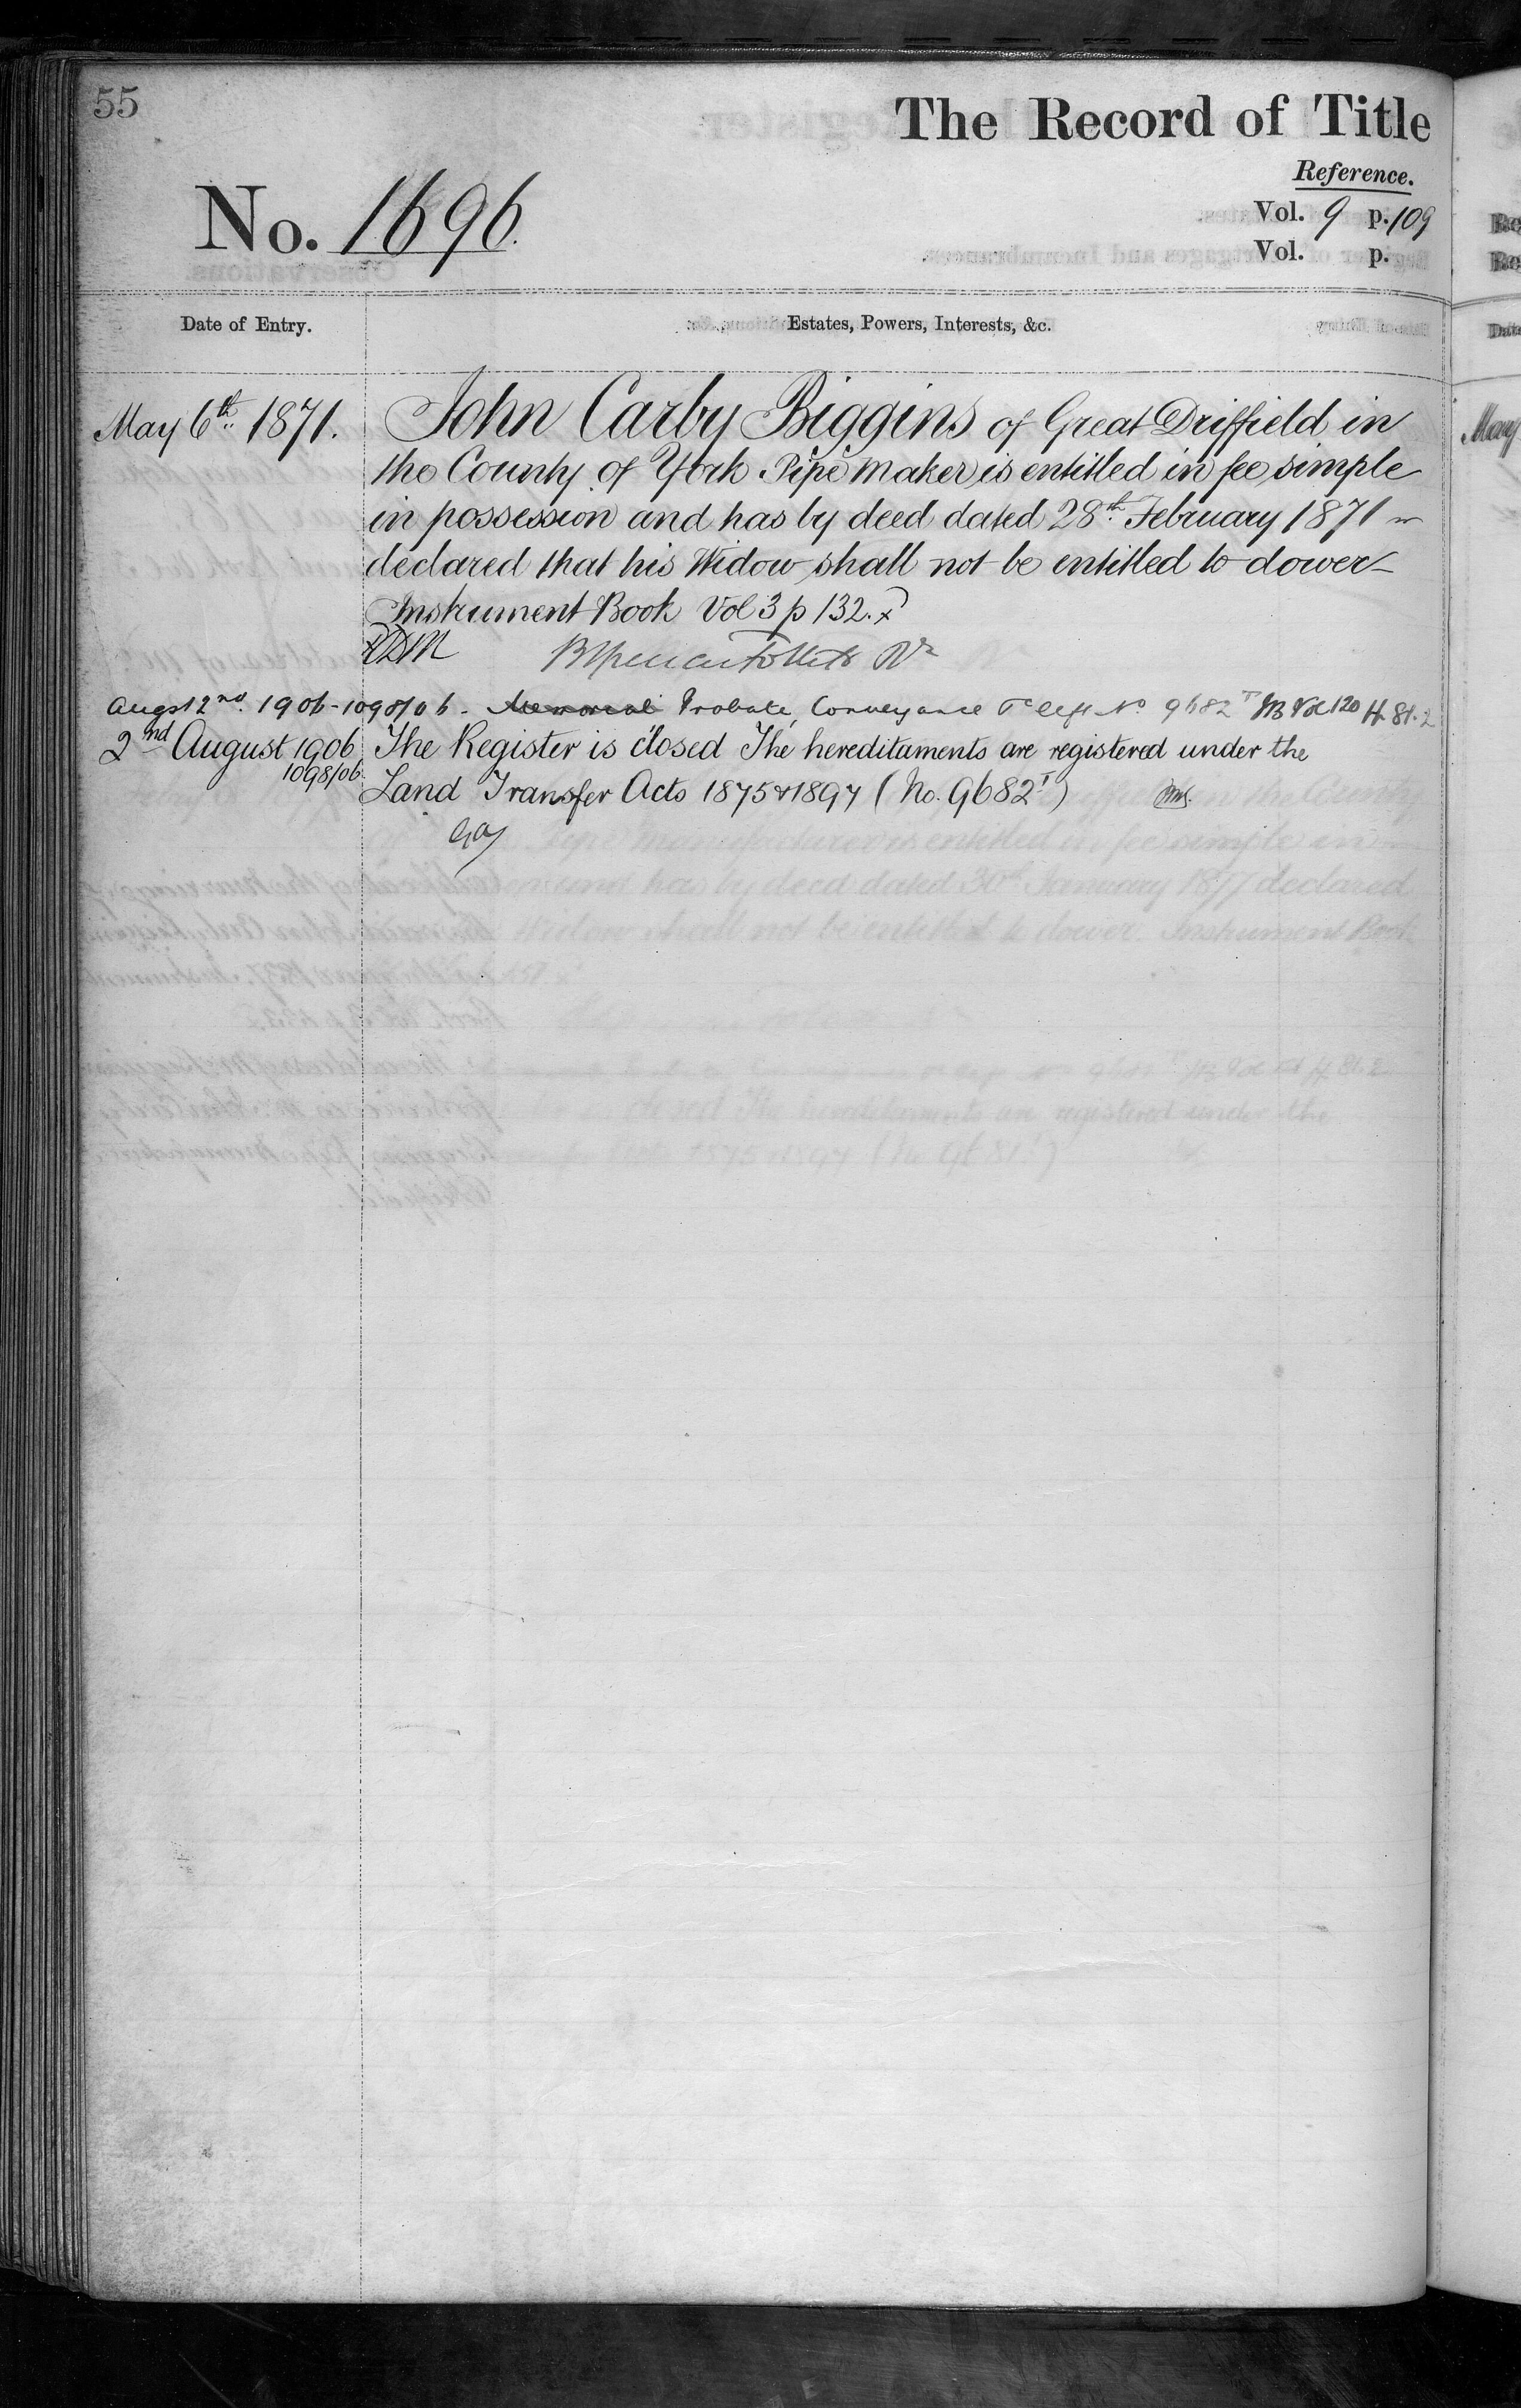 55
The Record of Title
Reference.
No. 1696.
Vol. 9 p. 109
Vol. p.
Date of Entry.
Estates, Powers, Interests, &c.
May 6th 1871.
John Carby Biggins of Great Driffield in
the County of York Pipe Maker is entitled in fee simple
in possession and has by deed dated 28th February 1871
declared that his Widow shall not be entitled to dower
Instrument Book Vol 3 p 132.
Augst 2nd. 1906 - 1098/06 - Memorial Probate, Conveyance No 9682T Vol 120 81.2
2nd August 1906
1098/06
The Register is closed The hereditaments are registered under the
Land Transfer Acts 1875 & 1897 (No. 9682T)
May